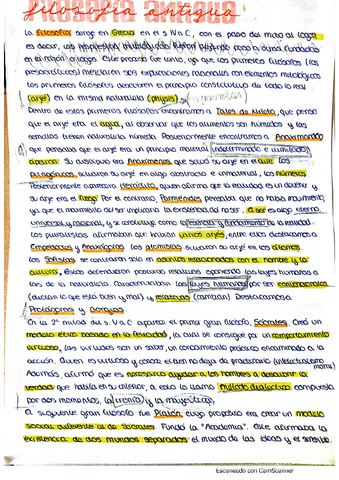 filosofía antigua
La filosofía surge en Grecia en el s. VI a.C, con el paso del mito al logos
es decir,
en la razón (logos). Este proceso fue lento, ya que los primeros filósofos (los
presocráticos) mezclaron sus explicaciones racionales con elementos mitológicos
Los primeros filósofos descubren el principio constitutivo de todo lo real
(arjé) en la misma naturaleza (physis)
Dentro de estos primeros filósofos encontramos a Tales de Mileto, que pensó
que el arjé era el agua, al observar que los alimentos son húmedos y las
semillas tienen naturaleza húmeda. Posteriormente encontramos a Anaximandro
que pensaba que el arjé era un principio material indeterminado e ilimitado,
apeiron. Su discípulo era Anaxímenes, que situó su arjé en el aire. Los
pitagóricos, situaron su arjé en algo abstracto e inmaterial, los números
Posteriormente aparecería Heráclito, quien afirma que la realidad es un devenir y
su arjé era el fuego. Por el contrario, Parménides pensaba que no había movimiento,
ya que el movimiento del ser implicaría la existencia del no ser. El ser es algo eterno,
universal y racional, y se divulgó como la esencia y fundamento de la realidad.
Los pluralistas afirmaban que había varios arjés, entre ellos destacamos a
Empédocles y Anaxágoras. Los atomistas situaron su arjé en los átomos.
Los Sofistas se centraron solo en asuntos relacionados con el hombre y la
cultura. Estos defendieron posturas relativas oponiendo las leyes humanas a
las de la naturaleza. Caracterizaban las leyes humanas por ser convencionales
(decían lo que está bien y mal) y relativas (cambian). Destacamos a
Protágoras y Gorgias
En la 2ª mitad del s. V a.C aparece el primer gran filósofo, Sócrates. Creó un
modelo ético basado en la felicidad, la cual se consigue por un comportamiento
virtuoso, las virtudes son un saber, un conocimiento práctico encaminado a la
acción. Quien es virtuoso y conoce el bien no deja de practicarlo (intelectualismo
moral)
Además, afirmó que es necesario ayudar a los hombres a descubrir la
verdad que habita en su interior, a esto lo llamó método dialéctico compuesto
por dos momentos, la ironía y la mayéutica.
El siguiente gran filósofo fue Platón, cuyo propósito era crear un modelo
social diferente al de Sócrates. Fundó la "Academia". Este afirmaba la
existencia de dos mundos separados el mundo de las ideas y el sensible.
Escaneado con CamScanner